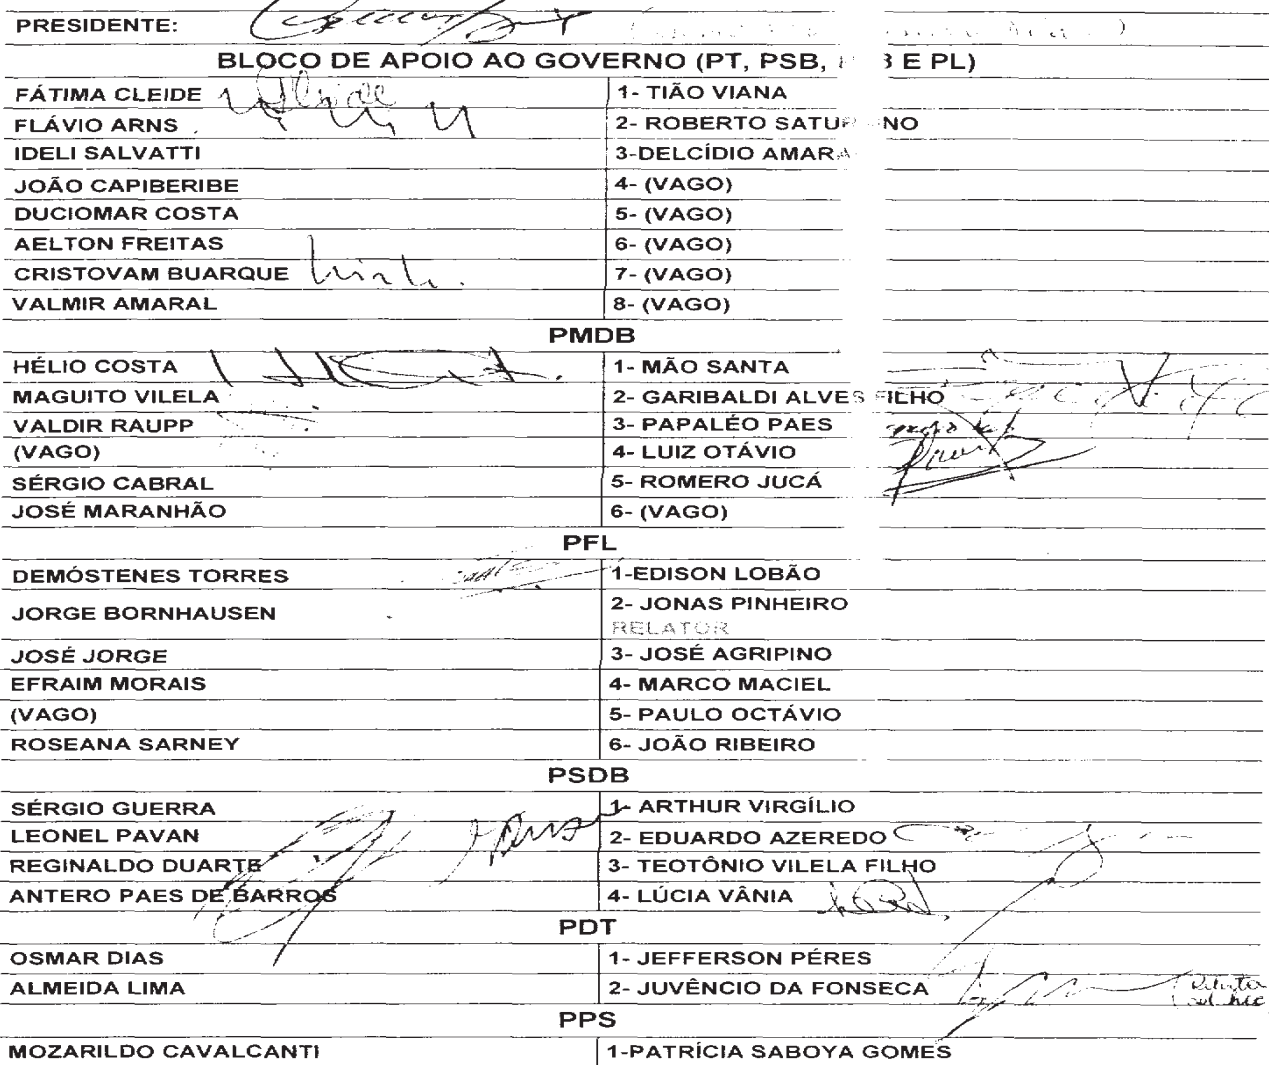 PRESIDENTE:
BLOCO DE APOIO AO GOVERNO (PT, PSB, B E PL)
FÁTIMA CLEIDE 1- TIÃO VIANA
FLÁVIO ARNS 2- ROBERTO SATUR NO
IDELI SALVATTI 3-DELCÍDIO AMARA
JOÃO CAPIBERIBE 4- (VAGO)
DUCIOMAR COSTA 5- (VAGO)
AELTON FREITAS 6- (VAGO)
CRISTOVAM BUARQUE 7- (VAGO)
VALMIR AMARAL 8- (VAGO)
PMDB
HÉLIO COSTA 1- MÃO SANTA
MAGUITO VILELA 2- GARIBALDI ALVES FILHO
VALDIR RAUPP 3- PAPALÉO PAES
(VAGO) 4- LUIZ OTÁVIO
SÉRGIO CABRAL 5- ROMERO JUCÁ
JOSÉ MARANHÃO 6- (VAGO)
PFL
DEMÓSTENES TORRES 1-EDISON LOBÃO
JORGE BORNHAUSEN 2- JONAS PINHEIRO
RELATOR
JOSÉ JORGE 3- JOSÉ AGRIPINO
EFRAIM MORAIS 4- MARCO MACIEL
(VAGO) 5- PAULO OCTÁVIO
ROSEANA SARNEY 6- JOÃO RIBEIRO
PSDB
SÉRGIO GUERRA 1- ARTHUR VIRGÍLIO
LEONEL PAVAN 2- EDUARDO AZEREDO
REGINALDO DUARTE 3- TEOTÔNIO VILELA FILHO
ANTERO PAES DE BARROS 4- LÚCIA VÂNIA
PDT
OSMAR DIAS 1- JEFFERSON PÉRES
ALMEIDA LIMA 2- JUVÊNCIO DA FONSECA
ad hoc
PPS
MOZARILDO CAVALCANTI 1-PATRÍCIA SABOYA GOMES